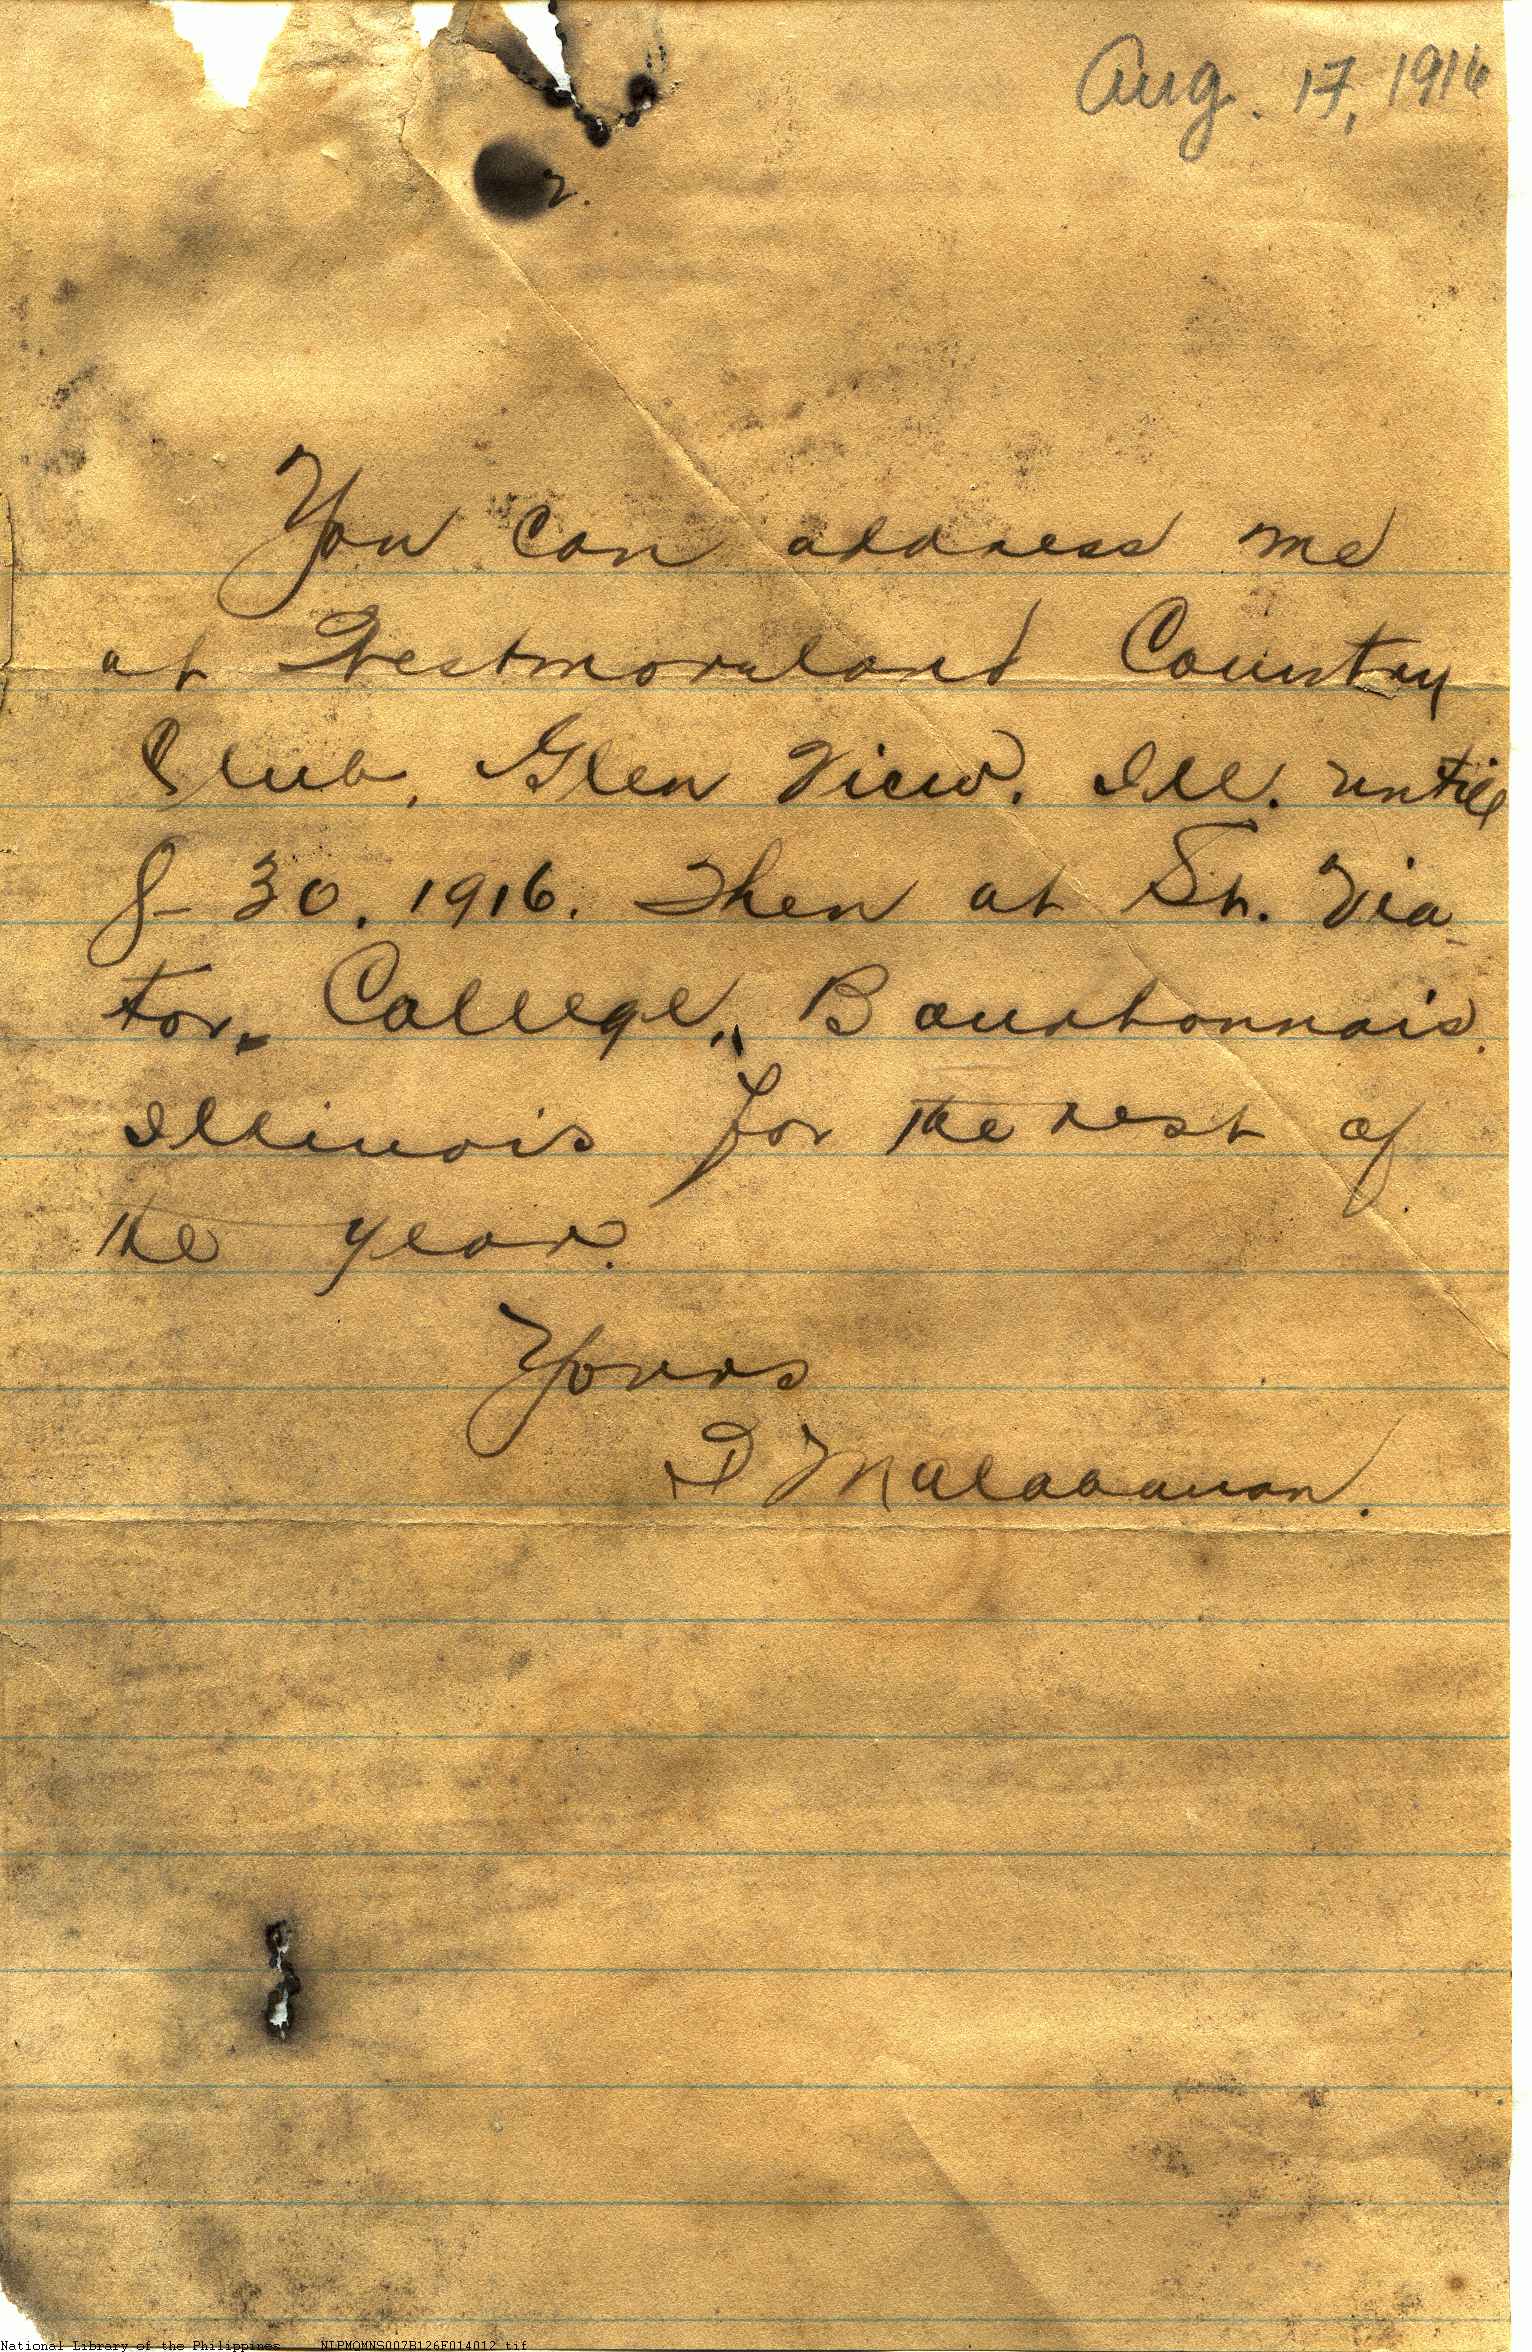 Aug. 17, 1916
2.
You can address me
at Westmoraland Country
Club, Glen View. Ill. untill
8-30. 1916. Then at St. Via-
tor. College, Bourbonnais.
Illinois for the rest of
the year.
Yours
D Malabanan.
National Library of the Philippines NLPMQMNS007B126F014012.tif